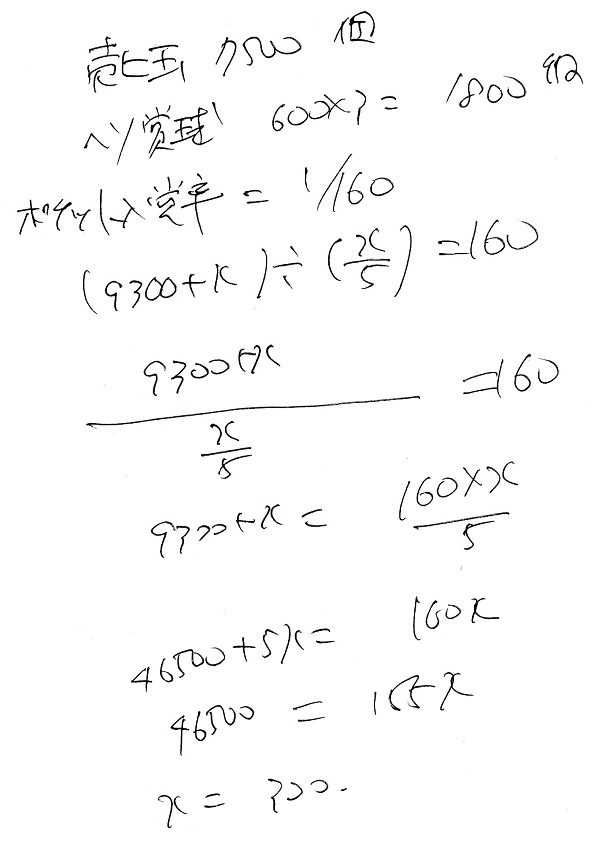 売上玉 7500 個
ヘソ賞球 600×3 = 1800 個
ポケット入賞率 = 1/160
(9300+x)÷(x/5)=160
9300+x / x/5 =160
9300+x = 160×x / 5
46500+5x= 160x
46500 = 155x
x = 300.